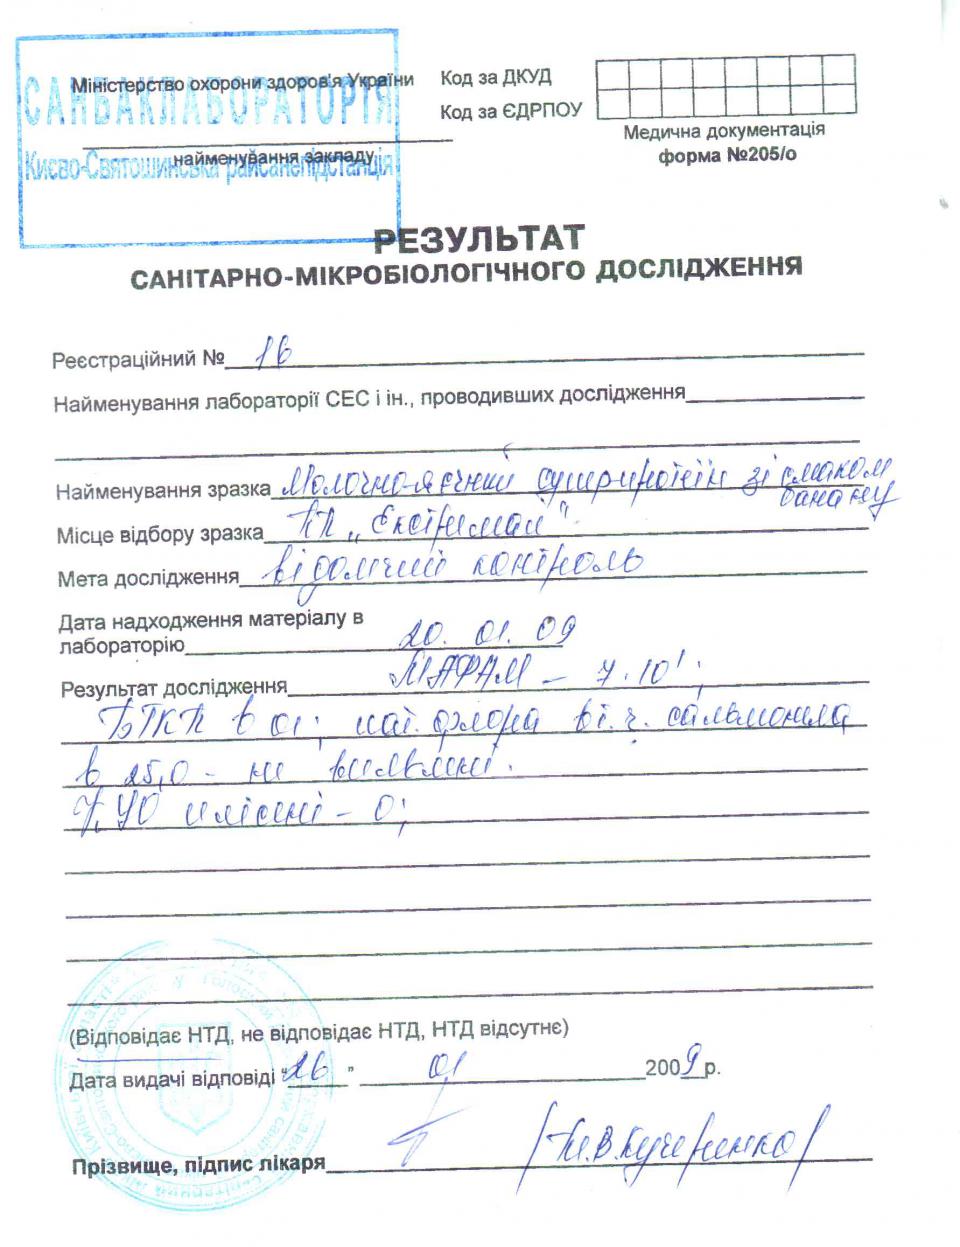 Міністерство охорони здоров'я України
САНБАКЛАБОРАТОРІЯ
найменування закладу
Києво-Святошинська райсанепідстанція
Код за ДКУД
Код за ЄДРПОУ
Медична документація
форма №205/о
РЕЗУЛЬТАТ
САНІТАРНО-МІКРОБІОЛОГІЧНОГО ДОСЛІДЖЕННЯ
Реєстраційний № 16
Найменування лабораторії СЕС і ін., проводивших дослідження
Найменування зразка Молочно-яєчний суперпротеїн зі смаком
банану
Місце відбору зразка ПП „Екстримал"
Мета дослідження відомчий контроль
Дата надходження матеріалу в
лабораторію 20. 01. 09
Результат дослідження МАФАМ – 7·10¹;
БГКП в 01; пат. флора в т.ч. сальмонила
в 25,0 – не виявлені.
КУО плісені – 0;
(Відповідає НТД, не відповідає НТД, НТД відсутнє)
Дата видачі відповіді "26" 01 2009 р.
Прізвище, підпис лікаря /Т.В.Кучеренко/